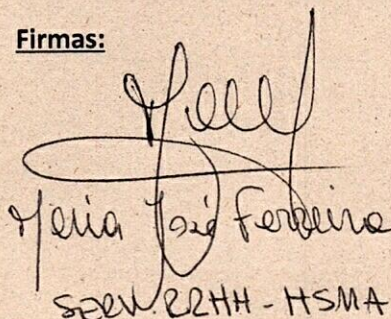 Firmas:
Maria José Ferreira
SERV. RRHH - HSMA